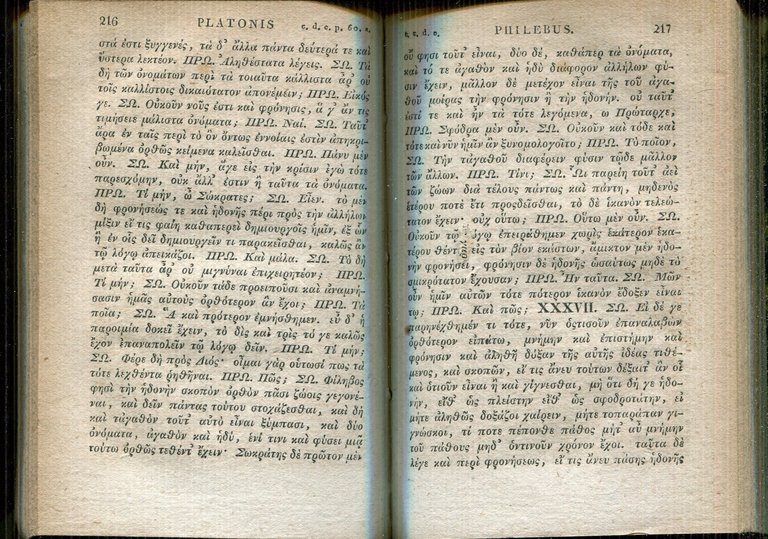 216 PLATONIS c. d. e. p. 60. a.
στά ἐστι ξυγγενές, τὰ δ' ἄλλα πάντα δεύτερά τε καὶ
ὕστερα λεκτέον. ΠΡΩ. Ἀληθέστατα λέγεις. ΣΩ. Τὰ
δὴ τῶν ὀνομάτων περὶ τὰ τοιαῦτα κάλλιστα ἆρ' οὐ
τοῖς καλλίστοις δικαιότατον ἀπονέμειν; ΠΡΩ. Εἰκός
γε. ΣΩ. Οὐκοῦν νοῦς ἐστι καὶ φρόνησις, ἅ γ' ἄν τις
τιμήσειε μάλιστα ὀνόματα; ΠΡΩ. Ναί. ΣΩ. Ταῦτ'
ἄρα ἐν ταῖς περὶ τὸ ὂν ὄντως ἐννοίαις ἐστὶν ἀπηκρι-
βωμένα ὀρθῶς κείμενα καλεῖσθαι. ΠΡΩ. Πάνυ μὲν
οὖν. ΣΩ. Καὶ μήν, ἅγε εἰς τὴν κρίσιν ἐγὼ τότε
παρεσχόμην, οὐκ ἄλλ' ἐστὶν ἢ ταῦτα τὰ ὀνόματα.
ΠΡΩ. Τί μήν, ὦ Σώκρατες; ΣΩ. Εἶεν. τὸ μὲν
δὴ φρονήσεώς τε καὶ ἡδονῆς πέρι πρὸς τὴν ἀλλήλων
μῖξιν εἴ τις φαίη καθαπερεὶ δημιουργοῖς ἡμῖν, ἐξ ὧν
ἢ ἐν οἷς δεῖ δημιουργεῖν τι παρακεῖσθαι, καλῶς ἂν
τῷ λόγῳ ἀπεικάζοι. ΠΡΩ. Καὶ μάλα. ΣΩ. Τὸ δὴ
μετὰ ταῦτα ἆρ' οὐ μιγνύναι ἐπιχειρητέον; ΠΡΩ.
Τί μήν; ΣΩ. Οὐκοῦν τάδε προειποῦσι καὶ ἀναμνή-
σασιν ἡμᾶς αὐτοὺς ὀρθότερον ἂν ἔχοι; ΠΡΩ. Τὰ
ποῖα; ΣΩ. Ἃ καὶ πρότερον ἐμνήσθημεν. εὖ δ' ἡ
παροιμία δοκεῖ ἔχειν, τὸ δὶς καὶ τρὶς τό γε καλῶς
ἔχον ἐπαναπολεῖν τῷ λόγῳ δεῖν. ΠΡΩ. Τί μήν;
ΣΩ. Φέρε δὴ πρὸς Διός· οἶμαι γὰρ οὑτωσί πως τὰ
τότε λεχθέντα ῥηθῆναι. ΠΡΩ. Πῶς; ΣΩ. Φίληβος
φησὶ τὴν ἡδονὴν σκοπὸν ὀρθὸν πᾶσι ζώοις γεγονέ-
ναι, καὶ δεῖν πάντας τούτου στοχάζεσθαι, καὶ δὴ
καὶ τἀγαθὸν τοῦτ' αὐτὸ εἶναι ξύμπασι, καὶ δύο
ὀνόματα, ἀγαθὸν καὶ ἡδύ, ἑνί τινι καὶ φύσει μιᾷ
τούτω ὀρθῶς τεθέντ' ἔχειν· Σωκράτης δὲ πρῶτον μὲν
PHILEBUS. 217
οὔ φησι τοῦτ' εἶναι, δύο δέ, καθάπερ τὰ ὀνόματα,
καὶ τό τε ἀγαθὸν καὶ ἡδὺ διάφορον ἀλλήλων φύ-
σιν ἔχειν, μᾶλλον δὲ μετέχον εἶναι τῆς τοῦ ἀγα-
θοῦ μοίρας τὴν φρόνησιν ἢ τὴν ἡδονήν. οὐ ταῦτ'
ἐστί τε καὶ ἦν τὰ τότε λεγόμενα, ὦ Πρώταρχε,
ΠΡΩ. Σφόδρα μὲν οὖν. ΣΩ. Οὐκοῦν καὶ τόδε καὶ
τότε καὶ νῦν ἡμῖν ἂν ξυνομολογοῖτο; ΠΡΩ. Τὸ ποῖον,
ΣΩ. Τὴν τἀγαθοῦ διαφέρειν φύσιν τῷδε μᾶλλον
τῶν ἄλλων. ΠΡΩ. Τίνι; ΣΩ. Ὧι παρείη τοῦτ' ἀεὶ
τῶν ζώων διὰ τέλους πάντως καὶ πάντη, μηδενὸς
ἑτέρου ποτὲ ἔτι προσδεῖσθαι, τὸ δὲ ἱκανὸν τελεώ-
τατον ἔχειν· οὐχ οὕτω; ΠΡΩ. Οὕτω μὲν οὖν. ΣΩ.
Οὐκοῦν τῷ λόγῳ ἐπειράθημεν χωρὶς ἑκάτερον ἑκα-
τέρου θέντες εἰς τὸν βίον ἑκάστων, ἄμικτον μὲν ἡδο-
νὴν φρονήσει, φρόνησιν δὲ ἡδονῆς ὡσαύτως μηδὲ τὸ
σμικρότατον ἔχουσαν; ΠΡΩ. Ἦν ταῦτα. ΣΩ. Μῶν
οὖν ἡμῖν αὐτῶν τότε πότερον ἱκανὸν ἔδοξεν εἶναί
τῳ; ΠΡΩ. Καὶ πῶς; XXXVII. ΣΩ. Εἰ δέ γε
παρηνέχθημέν τι τότε, νῦν ὁστισοῦν ἐπαναλαβὼν
ὀρθότερον εἰπάτω, μνήμην καὶ ἐπιστήμην καὶ
φρόνησιν καὶ ἀληθῆ δόξαν τῆς αὐτῆς ἰδέας τιθέ-
μενος, καὶ σκοπῶν, εἴ τις ἄνευ τούτων δέξαιτ' ἄν οἱ
καὶ ὁτιοῦν εἶναι ἢ καὶ γίγνεσθαι, μὴ ὅτι δή γε ἡδο-
νήν, εἴθ' ὡς πλείστην εἴθ' ὡς σφοδροτάτην, εἰ
μήτε ἀληθῶς δοξάζοι χαίρειν, μήτε τοπαράπαν γι-
γνώσκοι, τί ποτε πέπονθε πάθος μήτ' αὖ μνήμην
τοῦ πάθους μηδ' ὁντινοῦν χρόνον ἔχοι. ταῦτα δὲ
λέγε καὶ περὶ φρονήσεως, εἴ τις ἄνευ πάσης ἡδονῆς